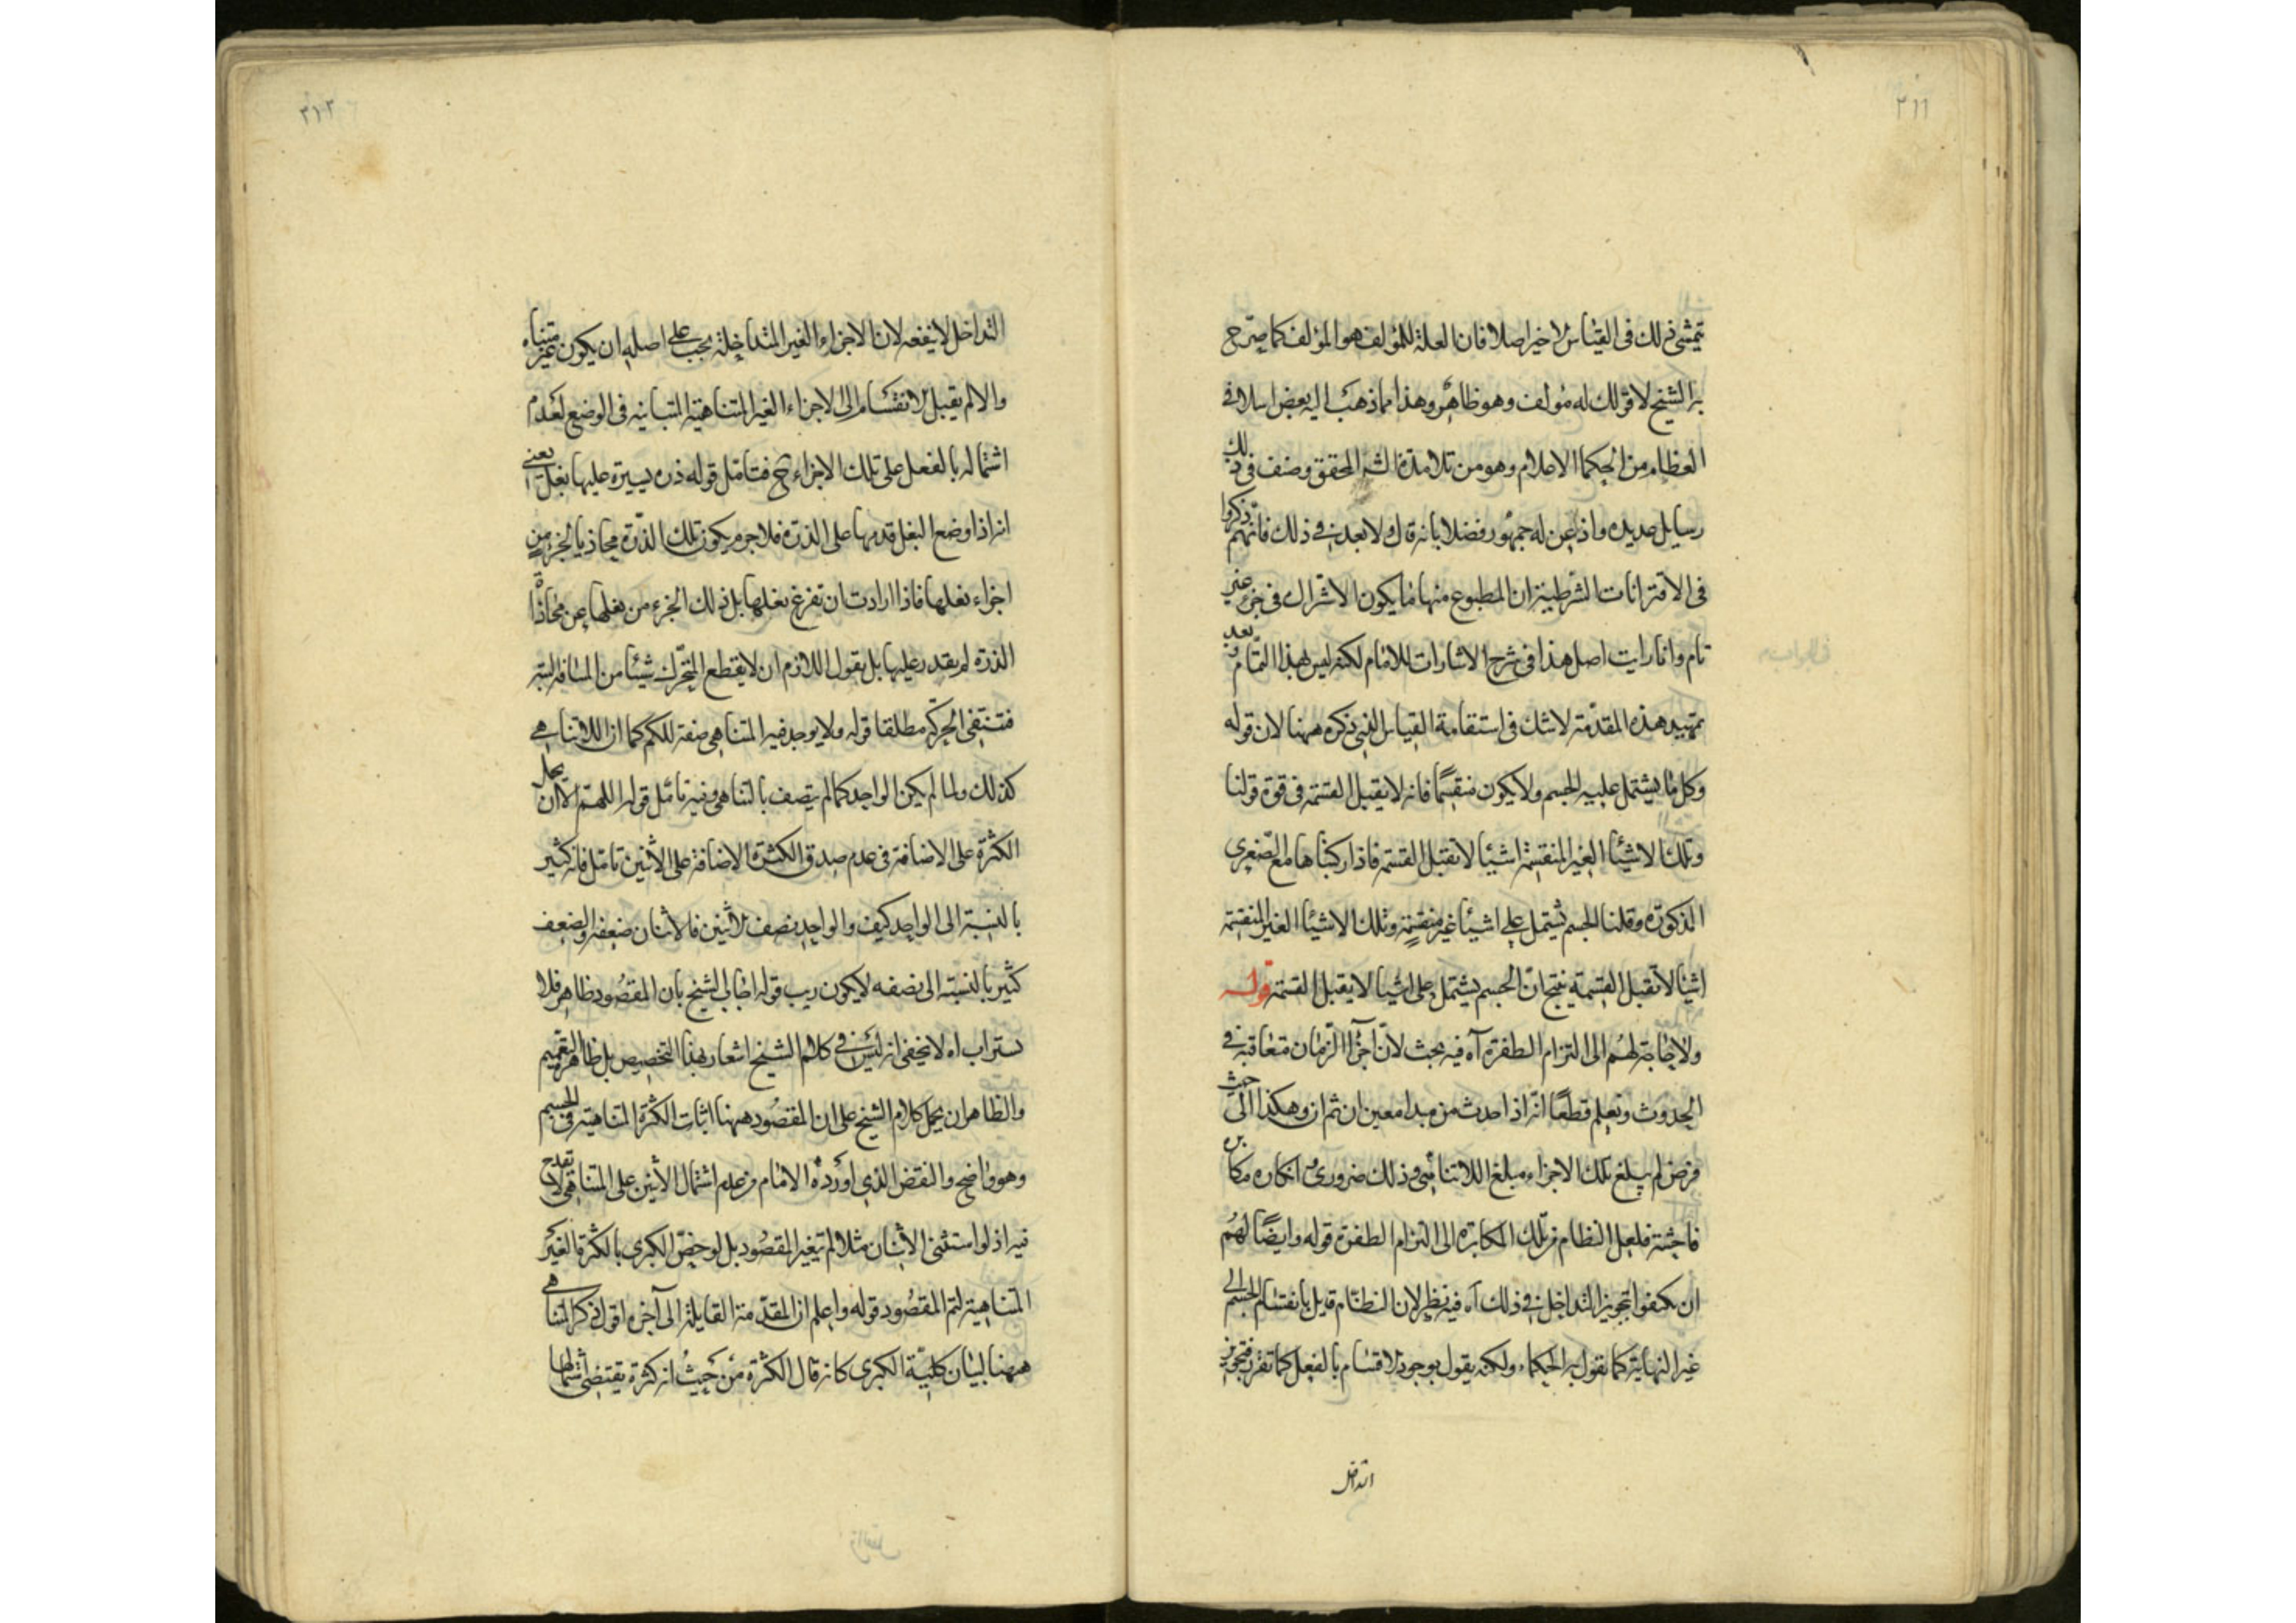 ٣١١
تمشى ذلك فى القياس الاخير اصلا فان العلة للمؤلف هو المؤلف كما صرح
به الشيخ لا قولك له مؤلف وهو ظاهر وهذا مما ذهب اليه بعض اسلافى
العظام من الحكما الاعلام وهو من تلامذة الشه المحقق وصنف فى ذلك
رسايل عديده واذعن له جمهور فضلا بانه قال ولا بعد فى ذلك فانهم ذكروا
فى الاقترانات الشرطية ان المطبوع منها ما يكون الاشتراك فى جزء غير
تام وانا رايت اصل هذا فى شرح الاشارات للامام لكنه ليس بهذا التمام وبعد
تمهيد هذه المقدمة لا شك فى استقامة القياس الذى ذكره ههنا لان قوله
وكل ما يشتمل عليه الجسم ولا يكون منقسما فانه لا يقبل القسمة فى قوة قولنا
وتلك الاشيئا الغير المنقسمة اشيئا لا تقبل القسمة فاذا ركبناها مع الصغرى
المذكوره وقلنا الجسم يشتمل على اشيئا غير منقسمة وتلك الاشيئا الغير المنقسمة
اشيئا لا تقبل القسمة ينتج ان الجسم يشتمل على اشيئا لا يقبل القسمة قوله
ولا حاجة لهم الى التزام الطفرة آه فيه بحث لان اجزاا الزمان متعاقبة فى
الحدوث ونعلم قطعا انه اذا حدث من مبدا معين ان ثم ان وهكذا الى حيث
فرض لم يبلغ تلك الاجزاء مبلغ اللاتناهى وذلك ضرورى انكاره مكابره
فاحشة فلعل النظام فر تلك المكابره الى التزام الطفرة قوله وايضا لهم
ان يكتفوا بتجويز التداخل فى ذلك آه فيه نظر لان النظام قايل بانقسام الجسم الى
غير النهاية كما يقول به الحكماء ولكنه يقول بوجود الاقسام بالفعل كما تقرر فتجويز
التداخل
٣١٢
التداخل لا ينفعه لان الاجزاء الغير المتداخلة يجب على اصله ان يكون غير متناه
والا لم يقبل الانقسام الى الاجزاء الغير المتناهية المتباينه فى الوضع لعدم
اشتماله بالفعل على تلك الاجزاء ح فتامل قوله ذره يسيرة عليها بغل يعنى
انه اذا وضع البغل قدمها على الذره فلا جرم يكون تلك الذرة محاذيا لجزء من
اجزاء نعلها فاذا ارادت ان تفرغ نعلها بل ذلك الجزء من نعلها عن محاذاة
الذره لم يقدر عليها بل يقول اللازم ان لا يقطع المتحرك شيئا من المسافه البته
فتنتفى الحركة مطلقا قوله ولا يوجد فيه المتناهى صفة للكم كما ان اللاتناهى
كذلك ولما لم يكن الواحد كما لم يتصف بالتناهى وفيه تامل قوله اللهم الا ان يحمل
الكثرة على الاضافة فى عدم صدق الكثرة الاضافة على الاثنين تامل فانه كثير
بالنسبة الى الواحد كيف والواحد نصف الاثنين فالاثنان ضعفه والضعف
كثير بالنسبة الى نصفه لا يكون ريب قوله اجاب الشيخ بان المقصود ظاهر فلا
يستراب اه لا يخفى انه ليس فى كلام الشيخ اشعار بهذا التخصيص بل ظاهره التعميم
والظاهر ان يحمل كلام الشيخ على ان المقصود ههنا اثبات الكثرة المتناهية فى الجسم
وهو واضح والنقض الذى اورده الامام من عدم اشتمال الاثنين على المتناهى لا يقدح
فيه اذ لو استثنى الاثنان مثلا لم يتغير المقصود بل لو خص الكبرى بالكثرة الغير
المتناهية لتم المقصود قوله واعلم ان المقدمة القايلة الى آخره اقول ذكر المتناهى
ههنا لبيان كلية الكبرى كانه قال الكثرة من حيث انه كثرة يقتضى اشتمالها